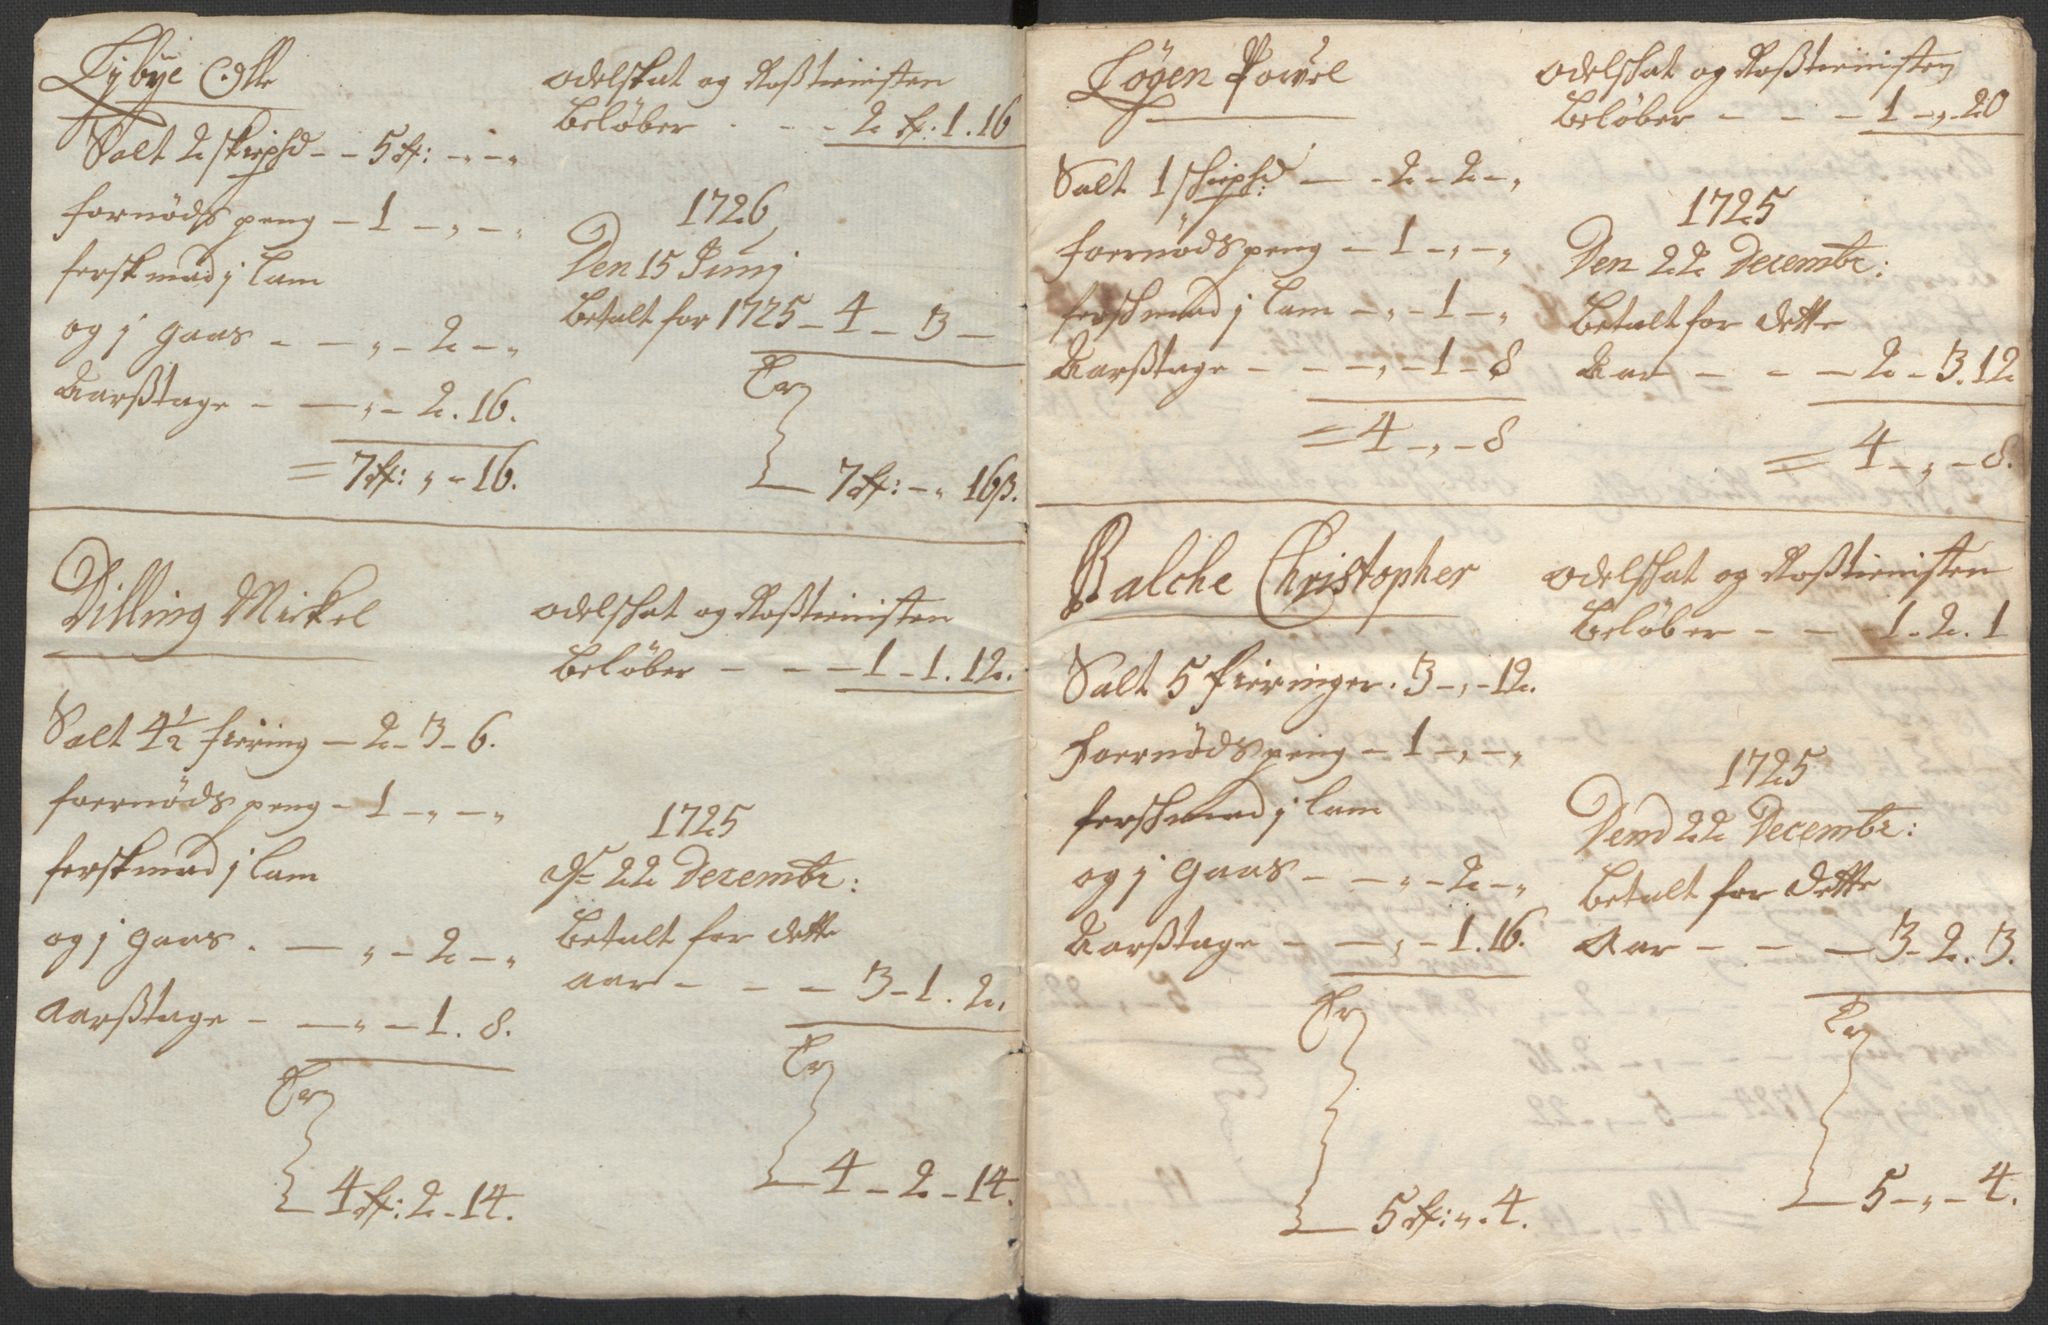 Lybye Olle
Salt 2 skiphd - - 5 rf: -„-„
fornøds peng - 1 -„-„
fersk mad j lam
og j gaas - - „ - 2 - „
Aarßtage - - „ - 2. 16.
= 7 rf: „ - 16.
odelskat og Roßtienisten
beløber - - - 2 rf: 1. 16
1726
Den 15 Junij
betalt for 1725 - 4 - 3 -
Er
7 rf: - „ 16 β.
Dilling Mickel
Salt 4 1/2 fiering - 2 - 3 - 6.
foernøds peng - 1 -„-„
fersk mad j lam
og j gaas. - „ - 2 - „
Aarßtage - - „ - 1. 8.
Er
4 rf: 2 - 14.
odelschat og Roßtienisten
beløber - - - 1 - 1. 12.
1725
d 22 Decembr:
betalt for dette
aar - - - 3 - 1. 2.
Er
4 - 2 - 14.
Løgen Powel
Salt 1 schiphd: - - 2 - 2 - „
foernøds peng - 1 -„-„
ferschmad j lam - „ - 1 - „
Aarßtage - - - „ - 1 - 8
= 4 -„- 8
odelschat og Roßtienisten
beløber - - - 1 -„- 20
1725
Den 22 Decembr:
betalt for dette
Aar - - - 2 - 3. 12
= 4 -„- 8.
Balche Christopher
Salt 5 fieringer. 3 -„- 12.
foernøds peng - 1 -„-„
ferschmad j lam
og j gaas - - „ - 2 - „
Aarßtage - - „ - 1. 16.
Er
5 rf: „. 4.
odelschat og Roßtienisten
beløber - - 1 - 2. 1
1725
Dend 22 Decembr:
betalt for dette
Aar - - - 3 - 2. 3.
Er
5 -„- 4.